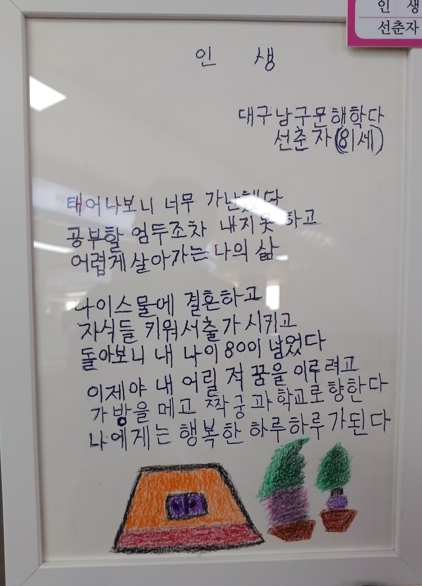 인 생
선춘자
인 생
대구남구문해학다
선춘자(81세)
태어나보니 너무 가난했다
공부할 엄두조차 내지못 하고
어렵게살아가는 나의 삶
나이스물에 결혼하고
자식들 키워서출가시키고
돌아보니 내 나이80이 넘었다
이제야 내 어릴 적 꿈을 이루려고
가방을 메고 짝궁과학교로 향한다
나에게는 행복한 하루하루가된다